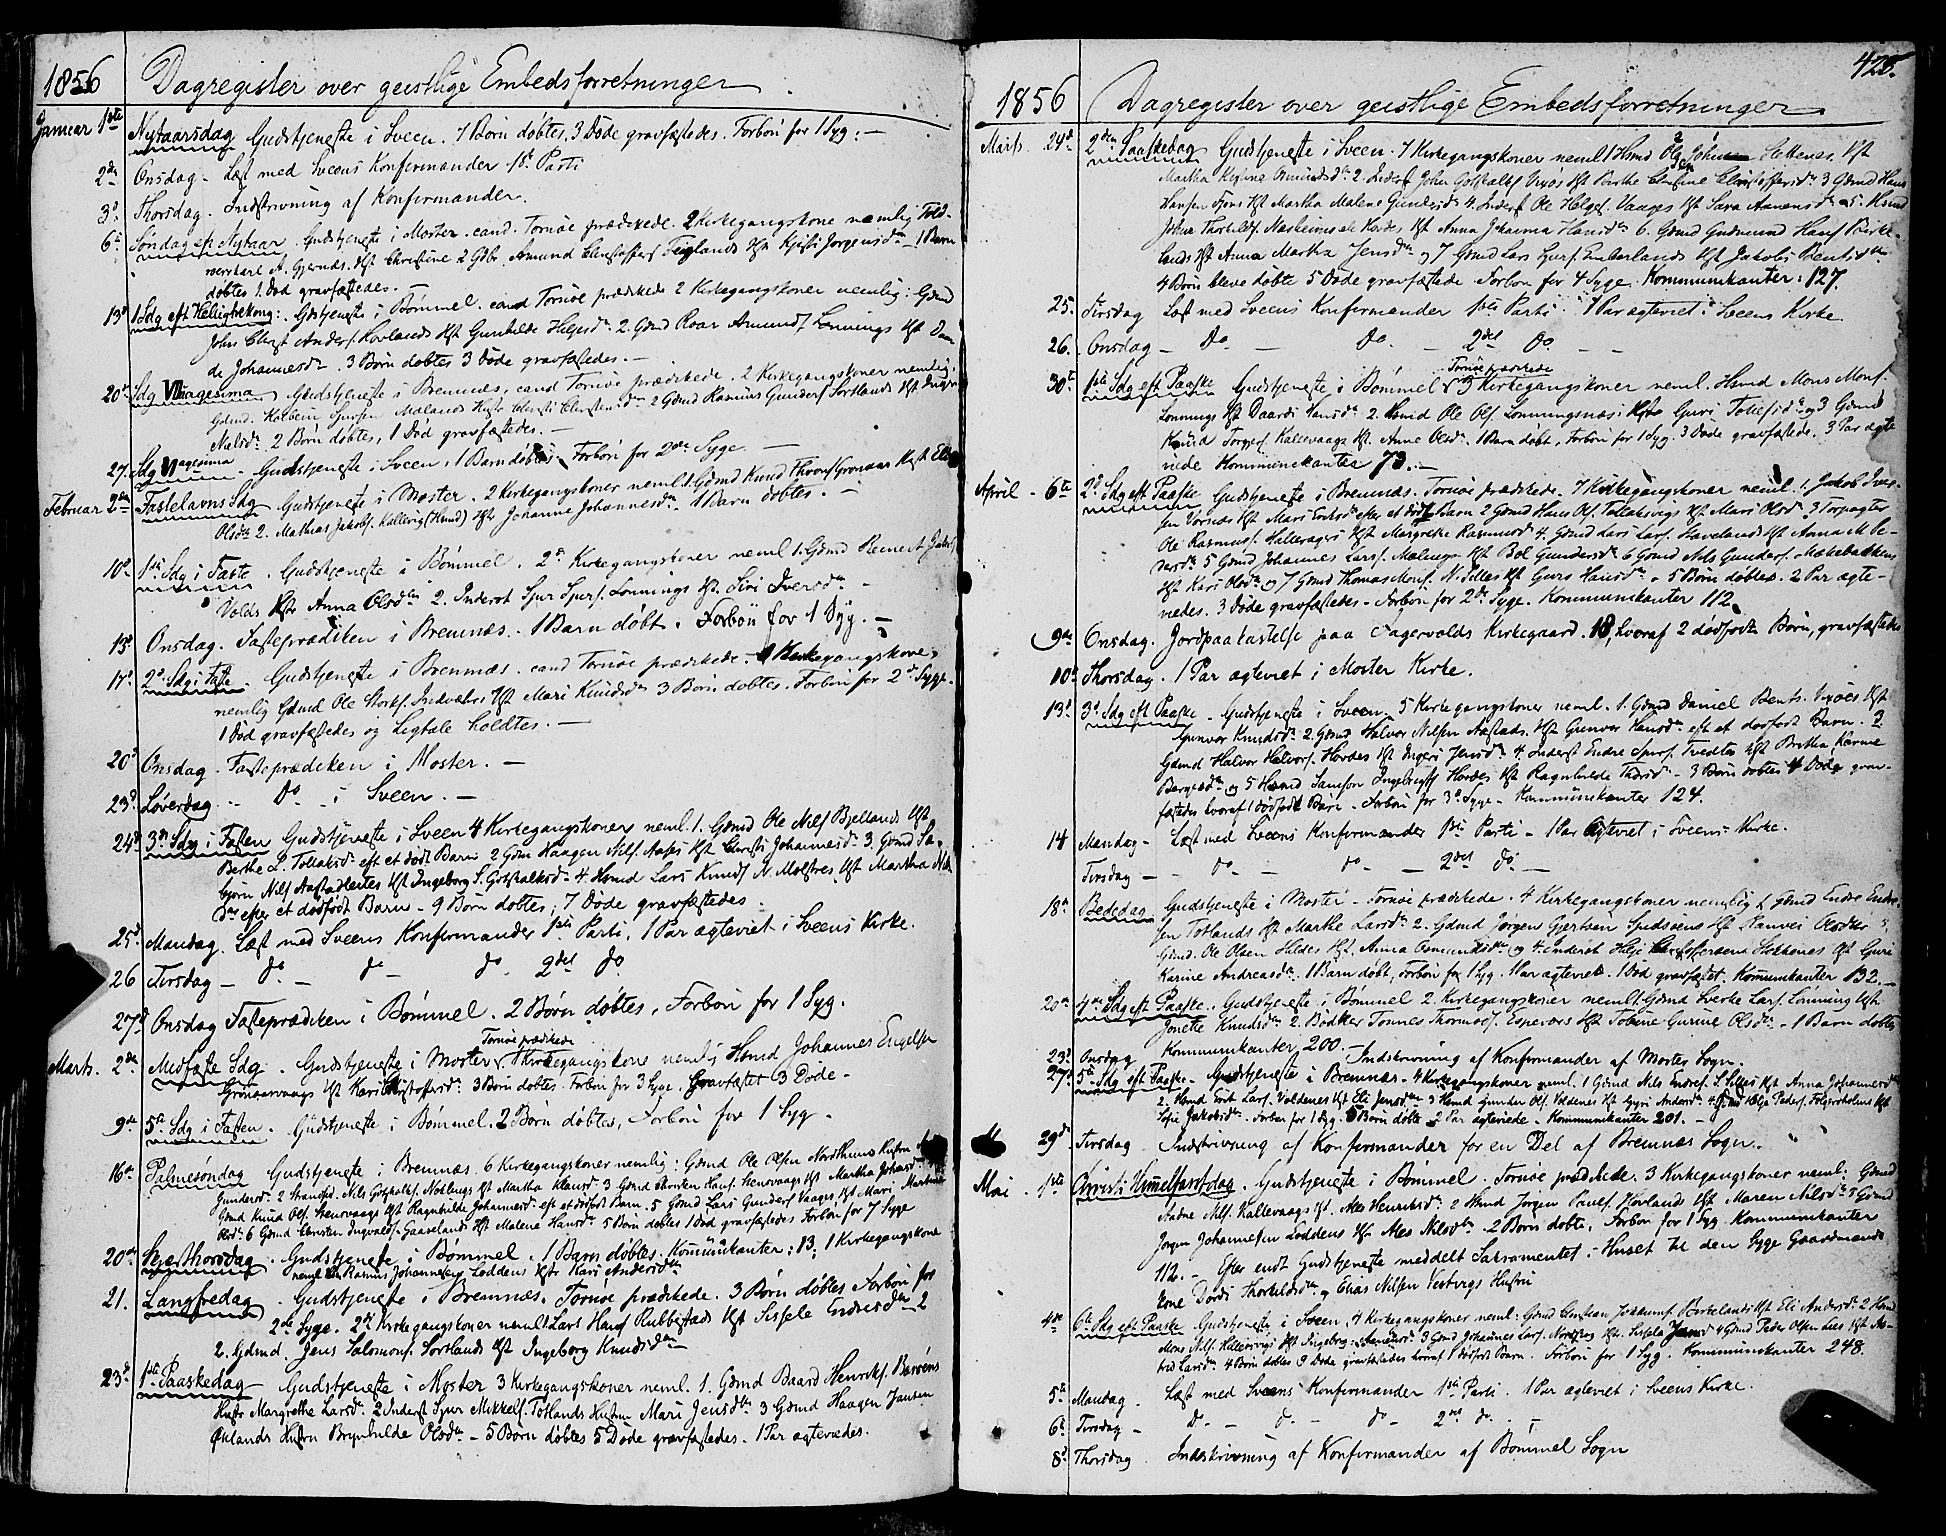 1856 Dagregister over geistlige Embedsforretninger
Januar 1ste Nytaarsdag Gudstjeneste i Sveen. 7 Børn døbtes. 3 Døde gravfæstedes. Forbøn for 1 Syg.
2den Onsdag - Læst med Sveens Konfirmander 1ste Parti
3d Thorsdag. Indskrivning af Konfirmander.
6te Søndag eft Nytaar. Gudstjeneste i Moster. cand. Tornøe prædikede. 2 Kirkegangskone nemlig
A. Gjernæs. Hst Christine 2 Gdbr. Amund Christoffers Hst Jørgensdtr - 1 Barn
døbtes 1 Død gravfæstedes. -
13d 1 Sdg eft Helligtrekong: Gdstjeneste i Bømmel. cand Tornøe prædikede 2 Kirkegangskoner nemlig: Gdmd
John Christ Anders. Hovlands Hst Gunhilde Helgesdtr. 2 Gdmd Roar Amunds Lønnings Hst
de Johannesdtr. 3 Børn døbtes 3 Døde gravfæstedes. -
20d Sdg Gudstjeneste i Bremnæs, cand Tornøe prædikede. 2 Kirkegangskoner nemlig.
Gdmd. Mælands Hustr 2 Gdmd Rasmus Gunders. Sortlands Hst
Nilsdtr. 2 Børn døbtes, 1 Død gravfæstedes. -
27. Sdg Gudstjeneste i Sveen, 1 Barn døbtes, Forbøn for 2de Syge -
Februar 2den Fastelavns Sdg Gudstjeneste i Moster. 2 Kirkegangskoner neml 1. Gdmd Knud Hst
Olsdtr 2. Mathias Jakobs. (Hmd) Hst Johanne Johannesdtr. 1 Barn døbtes. -
10d 1ste Sdg i Faste. Gudstjeneste i Bømmel. 2de Kirkegangskoner neml 1. Gdmd Reinert
Hst Anna Olsdtr 2. Inderst Sjur Sjurs. Lønnings Hst. Siri Iversdtr -
13d Onsdag. Fasteprædiken i Bremnæs. 1 Barn døbt. Forbøn for 1 Syg. -
17d 2d Sdg i Faste. Gudstjeneste i Bremnæs. cand Tornøe prædikede. 1 Kirkegangskone
nemlig Gdmd Ole Hst Mari Knudsdtr 3 Børn døbtes. Forbøn for 2de Syge.
1 Død gravfæstedes og Ligtale holdtes. -
20d Onsdag. Fasteprædiken i Moster. -
23d Løverdag - do i Sveen. -
24d 3die Sdg i Fasten Gudstjeneste i Sveen 4 Kirkegangskoner neml. 1. Gdmd Ole Nils. Bjelland Hst
Berthe L. Tollaksdtr eft et dødt Barn 2 Gdm Haagen Nils. Aases Hst Christi Johannesdtr. 3. Gdmd
bjørn Nils. Hst Ingeborg S. Gotskalksdtr 4. Hsmd Lars Knuds N. Molstres Hst Martha
efter et dødfødt Barn - 9 Børn døbtes; 7 Døde gravfæstedes.
25d Mandag. Læst med Sveens Konfirmander 1ste Parti, 1 Par ægteviet i Sveens Kirke.
26 Tirsdag - do - do - do. 2det do
27d Onsdag Fasteprædiken i Bømmel. 2 Børn døbtes, Forbøn for 1 Syg.
Tornøe prædikede
Marts. 2den Midfaste Sdg. Gudstjeneste i Moster. 1 Kirkegangskone nemlig Hsmd Johannes Engelsen
Hst Kari Christoffersdtr. 3 Børn døbtes. Forbøn for 3 Syge. Gravfæstet 3 Døde -
9de 5te Sdg i Fasten. Gudstjeneste i Bømmel. 2 Børn døbtes, Forbøn for 1 Syg.
16de Palmesøndag Gudstjeneste i Bremnæs. 6 Kirkegangskoner nemlig: Gdmd Ole Olsen Hustru
Gundersdtr. 2 Nils Gotskalks. Hst Martha 3 Gdmd Thorsten Hans. Stensvaags Hst Martha Johansdtr
Gdmd Knud Ols. Stensvaags Hst Ragnhilde Johannesdtr. eft et dødfødt Barn. 5 Gdmd Lars Gunders Vaages Hst Mari
Olsdtr 6 Gdmd Christen Ingvalds. Gaaslands Hst Malene Hansdtr 5 Børn døbtes 1 Død gravfæstedes Forbøn for 7 Syge
20de Skjærthorsdag. Gudstjeneste i Bømmel. 1 Barn døbtes. Kommunikanter: 13. 1 Kirkegangskone
neml Rasmus Johannesens Loddens Hst Kari Andersdtr
21. Langfredag. Gudstjeneste i Bremnæs. Tornøe prædikede. 3 Børn døbtes Forbøn for
2de Syge. 2de Kirkegangskoner neml Lars Hans. Rubbestads Hst Sissele Endresdtr 2
2. Gdmd. Jens Salomons. Sortlands Hst Ingeborg Knudsdtr
23d 1ste Paaskedag - Gudstjeneste i Moster 3 Kirkegangskoner neml. 1. Gdmd Baard Henriks.
Hustr Margrethe Larsdtr. 2 Inderst Sjur Mikkels. Totlands Hustru Mari Jensdtr 3 Gdmd Haagen Jansen
Øklands Hustru Brynhilde Olsdtr - 5 Børn døbtes 5 Døde gravfæstedes. 1 Par ægtevi­edes.
428.
1856 Dagregister over geistlige Embedsforretninger
Marts 24d 2den Paaskedag Gudstjeneste i Sveen. 7 Kirkegangskoner neml 1 Hsmd Hst
Martha Kistine 2 Inderst John Gotskalks Vixøs Hst Berthe Christine Christoffersdtr 3 Gdmd Hans
Hansen Fjons Hst Martha Malene Gundersdtr 4 Inderst Ole Helges. Vaages Hst Sara 5. Hsmd
Johan Thorkilds. Hst Anna Johanna Hansdtr 6. Gdmd Gudmund Hans Birke-
lands Hst Anna Martha Jensdtr og 7 Gdmd Lars Sjurs. Emberlands Hst Jakobi Bentsdtr
4 Børn bleve døbte 5 Døde gravfæstede Forbøn for 4 Syge. Kommunikanter: 127.
25. Tirsdag Læst med Sveens Konfirmander 1ste Parti 1 Par ægteviet i Sveens Kirke.
26. Onsdag - Do - Do. - 2det Do. - -
Tornøe prædikede
30te 1ste Sdg eft Paaske Gudstjeneste i Bømmel. 3 Kirkegangskoner neml. Hsmd Mons Mons.
Lønnings Hst Hansdtr. 2. Hsmd Ole Ols. Lønningsnæs Hst Guri og 3 Gdmd
Knud Torgers. Kallevaags Hst. Anne Olsdtr. 1 Barn døbt, Forbøn for 1 Syg. 3 Døde gravfæstede. 3 Par ægte
viede Kommunikanter 73. -
April - 6te 2d Sdg eft Paaske Gudstjeneste i Bremnæs. Tornøe prædikede. 7 Kirkegangskoner neml. 1. Jakob Iver-
sen Vornæs Hst Mari Eriksdtr efter et dødt Barn 2 Gdmd Hans Ols. Hst Mari Olsdtr 3 Forpagter
Ole Rasmus. Hst Margrethe Rasmusdtr 4. Gdmd Lars Lars. Hst Anna M. Pe-
dersdtr 5 Gdmd Johannes Lars. Hst Bol Gundersdtr 6 Gdmd Nils Gunders.
Hst Kari Olsdtr og 7 Gdmd Thomas Mons. N. Hst Guro Hansdtr. 5 Børn døbtes. 2 Par ægte-
viedes. 3 Døde gravfæstedes - Forbøn for 2de Syge. Kommunikanter 112.
9de Onsdag. Jordpaakastelse paa Fagervolds Kirkegaard. 18, hvoraf 2 dødfødte Børn, gravfæstedes
10d Thorsdag. 1 Par ægteviet i Moster Kirke.
13d 3d Sdg eft Paaske. Gudstjeneste i Sveen. 5 Kirkegangskoner neml. 1. Gdmd Daniel Bents. Vixøes Hst
Gunvor Knudsdtr. 2. Gdmd Halvor Nilsen Hst Gunvor Hansdtr eft et dødfødt Barn. 3
Gdmd Halvor Halvors. Hovdes Hst Ingeri Jensdtr. 4. Inderst Endre Sjurs. Tvedtes Hst Britha Karine
og 5 Hsmd Samson Ingebrigts Hovdes Hst Ragnhilde 3 Børn døbtes 4 Døde grav-
fæstedes hvoraf 1 dødfødt Barn. Forbøn for 3d Syge. Kommunikanter 124.
14 Mandag - Læst med Sveens Konfirmander 1ste Parti - 1 Par ægteviet i Sveens Kirke.
Tirsdag - - do - do - 2det do -
18de Bededag Gudstjeneste i Moster - Tornøe prædikede. 4 Kirkegangskoner nemlig 1 Gdmd Endre Endre-
sen Totlands Hst Marthe Larsdtr. 2. Gdmd Jørgen Gjertsen Hst Olsdtr 3.
Gdmd. Ole Olsen Hst. Anna og 4. Inderst Christoffersens Stokkenes Hst Guri
Karine Andreasdtr. 1 Barn døbt, Forbøn for 1 Syg. 1 Par ægteviet. 1 Død gravfæstet. Kommunikanter 132.
20de 4de Sdg eft Paaske. Gudstjeneste i Bømmel 2. Kirkegangskoner neml 1. Gdmd Sverke Lars. Lønning Hst
Jonette Knudsdtr 2. Bødker Tønnes Thormods. Espeværs Hst Tobine Gurine Olsdtr. - 1 Barn døbtes
Kommunikanter 200. -
23d Onsdag Indskrivning af Konfirmander af Moster Sogn.
27d 5te Sdg eft Paaske. Gudstjeneste i Bremnæs - 4 Kirkegangskoner neml. 1 Gdmd Nils Endres. Hst Anna Johannesdtr
2. Hsmd Erik Lars. Voldenes Hst Eli Jensdtr 3 Hsmd Gunder Ols. Voldenes Hst 4. Gdmd Peders. Hst
Sofie Jakobsdtr. Forbøn for 1 Syg. Børn døbte 2 Par ægteviede - Kommunikanter 201. -
29de Tirsdag Indskrivning af Konfirmander for en Del af Bremnæs Sogn.
Mai. 1ste Christi Himmelfartsdag. Gudstjeneste i Bømmel. Tornøe prædikede. 3 Kirkegangskoner neml: Gdmd
Aadne Nils. Kallevaags Hst. Ales Henriksdtr 2 Hsmd Jørgen Pauls. Hovland Hst Maren Nilsdtr 3 Gdmd
Jørgen Johannesen Loddens Hst Ales Nilsdtr. 2 Børn døbte. Forbøn for 1 Syg. Kommunikanter
112. - Efter endt Gudstjeneste meddelt Sakramentet i Huset til den Syge Gaardmands
kone Dordi Thorkildsdtr og Elias Nilsen Vesbergs Hustru
4de 6te Sdg eft Paaske Gudstjeneste i Sveen. 4 Kirkegangskoner neml: Gdmd Birkelands Hst Eli Andersdtr 2 Hsmd
Mons Nils. Hst Ingeborg 3 Gdmd Johannes Lars. Hst. Sissela 4 Gdmd Peder Olsen Lies Hst
Larsdtr. 4 Børn døbtes 9 Døde gravfæstedes hvoraf 1 dødfødt Barn. Forbøn for 1 Syg. Kommunikanter 248.
5te Mandag. Læst med Sveens Konfirmander 1ste Parti. 1 Par ægteviet i Sveens Kirke.
6te Tirsdag - do. - do. - do - 2det do.
8de Thorsdag Indskrivning af Konfirmander af Bømmel Sogn